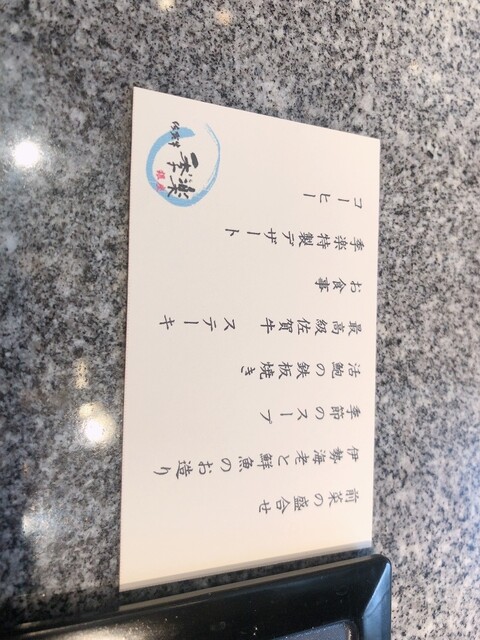 前菜の盛合せ
伊勢海老と鮮魚のお造り
季節のスープ
活鮑の鉄板焼き
最高級佐賀牛ステーキ
お食事
季楽特製デザート
コーヒー
佐賀牛
季楽
銀座